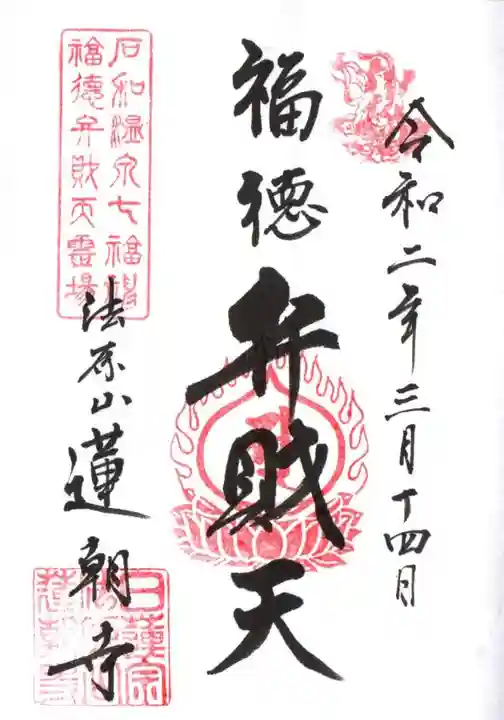 令和二年三月十四日
福徳弁財天
石和温泉七福神
福徳弁財天霊場
法永山蓮朝寺
日蓮宗
蓮朝寺